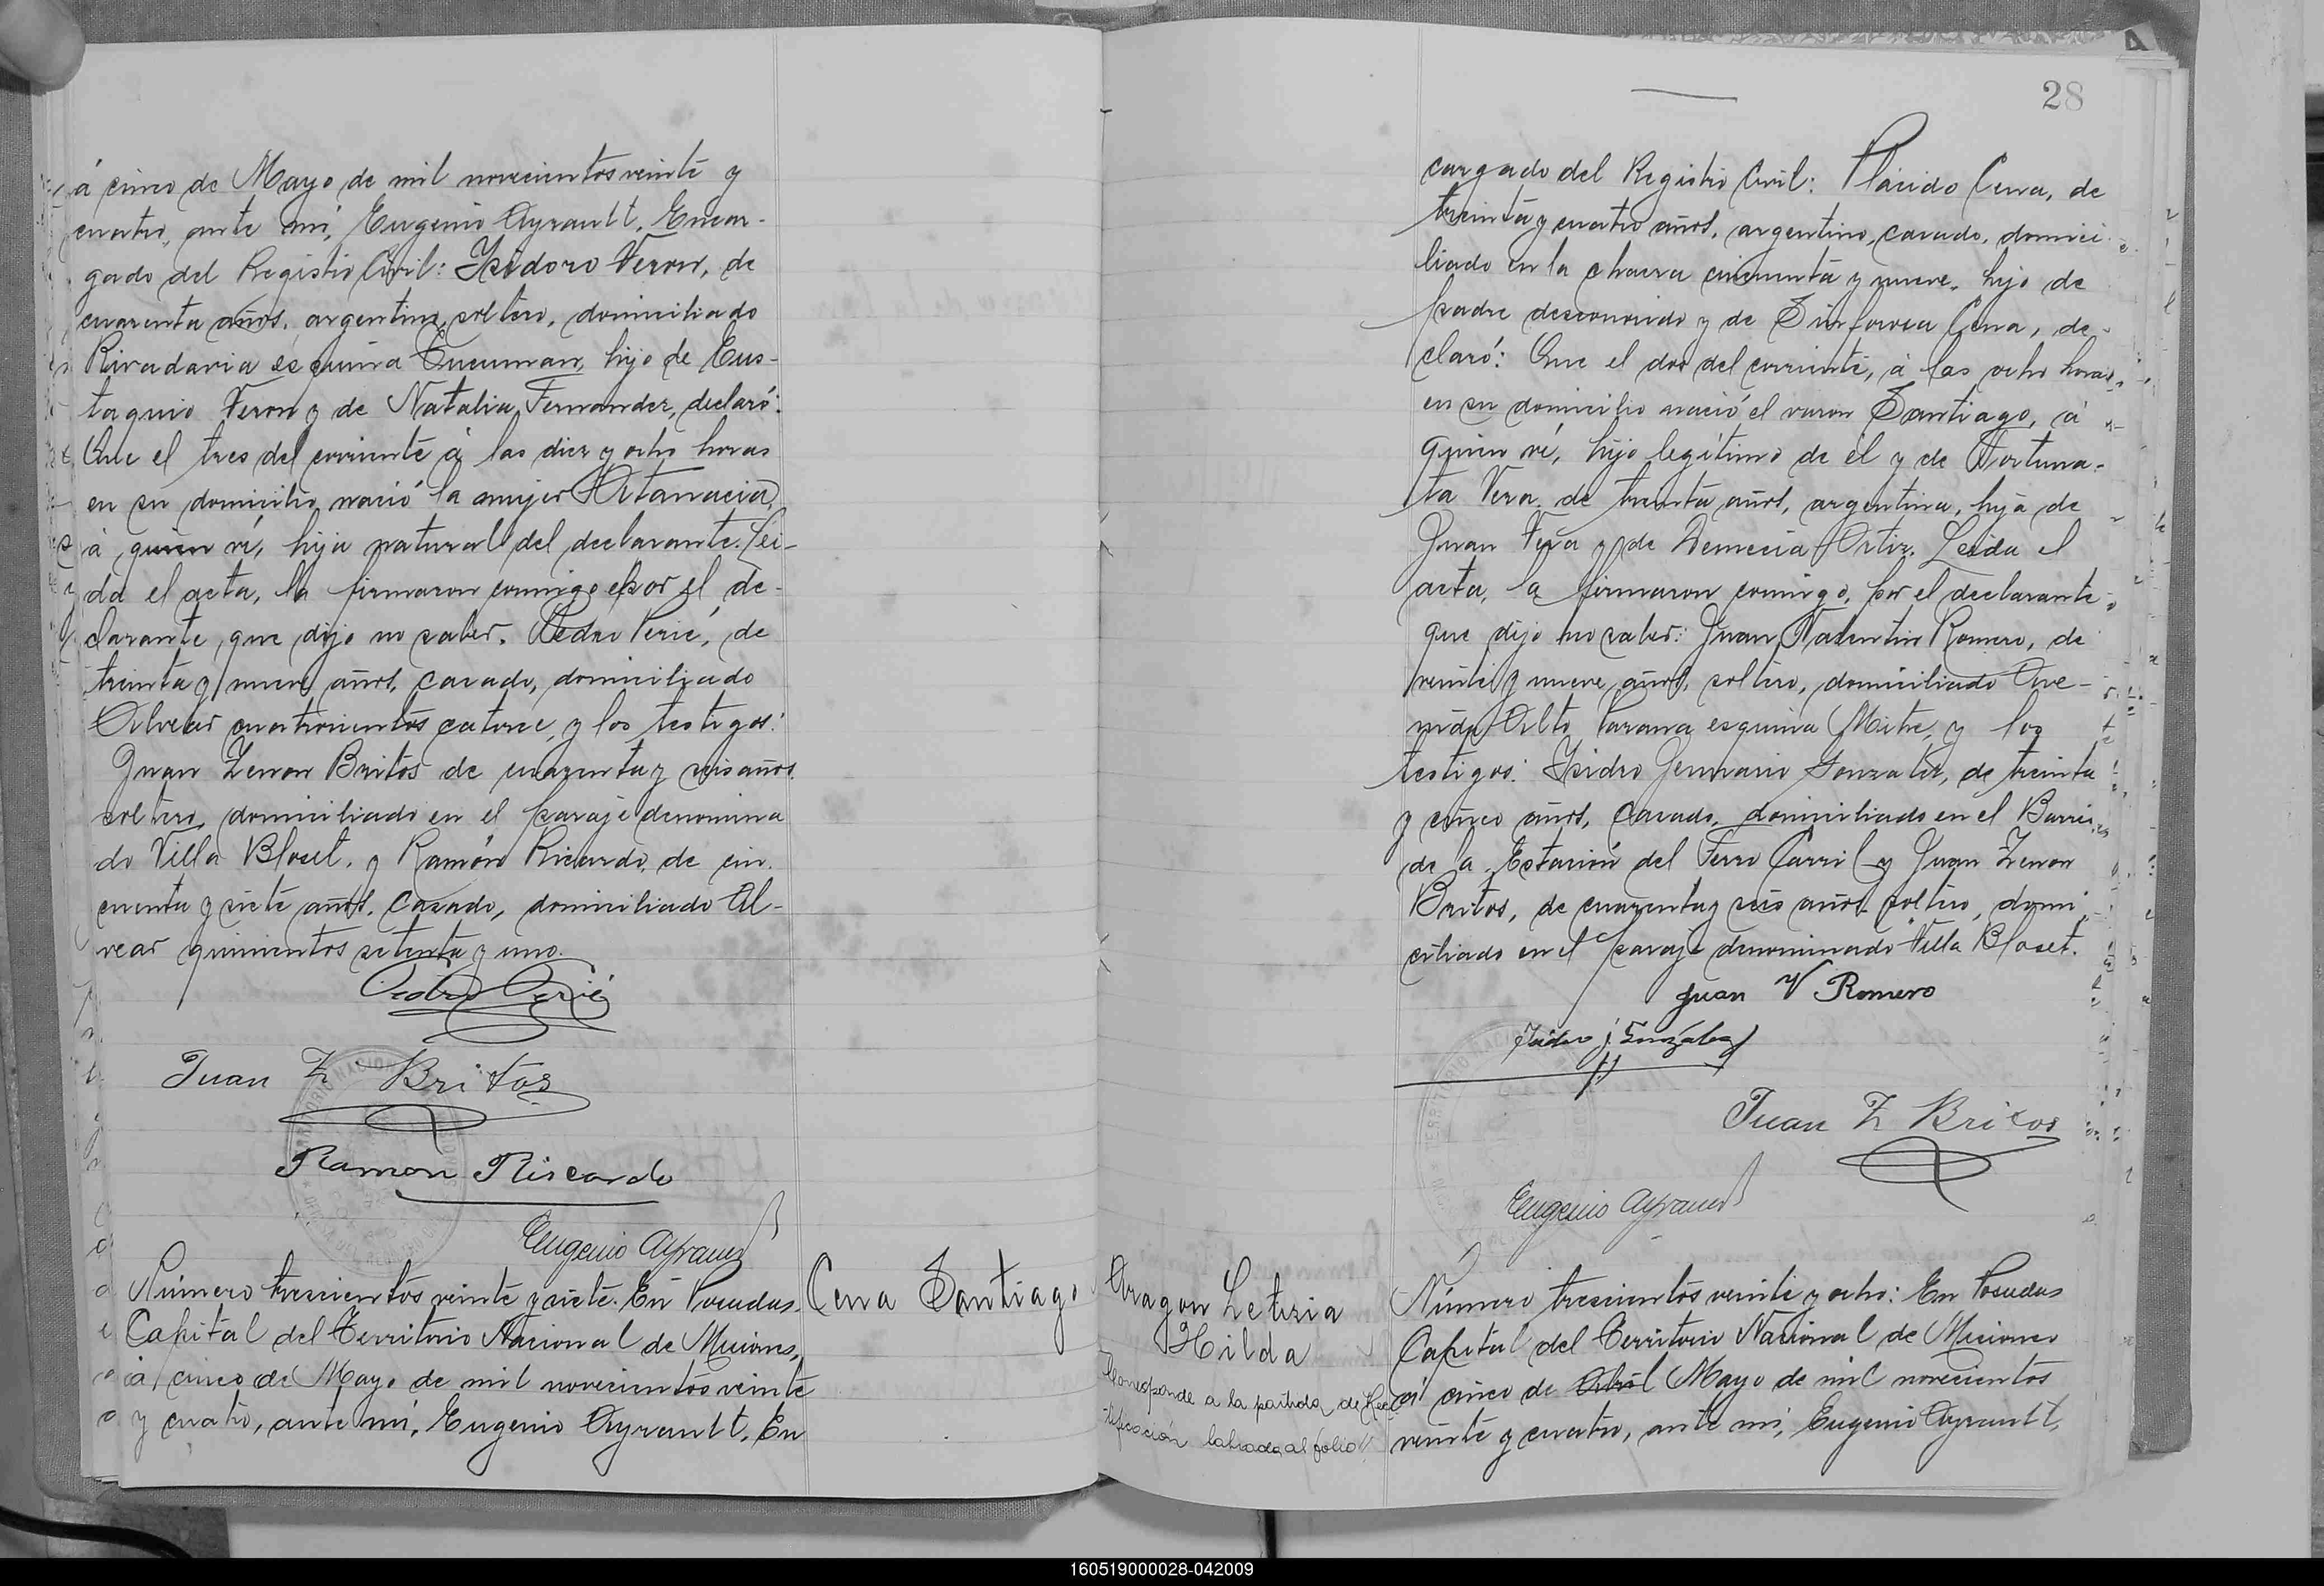 á cinco de Mayo de mil novecientos veinte y
cuatro, ante mi, Eugenio Ayrault, Encar-
gado del Registro Civil: Isidoro Veron, de
cuarenta años, argentino, soltero, domiciliado
Rivadavia esquina Tucuman, hijo de Eus-
taquio Veron y de Natalia Fernandez, declaró:
Que el tres del corriente á las diez y ocho horas
en su domicilio nació la mujer Atanacia,
á quien ví, hija natural del declarante. Lei-
da el acta, la firmaron conmigo por el de-
clarante, que dijo no saber. Pedro Perié, de
treinta y nueve años, casado, domiciliado
Alvear cuatrocientos catorce, y los testigos:
Juan Zenon Britos de cuarenta y seis años
soltero, domiciliado en el paraje denomina
do Villa Bloset, y Ramón Ricardo, de cin
cuenta y siete años, casado, domiciliado Al-
vear quinientos setenta y uno.
Pedro Perié
Juan Z Britos
Ramon Riscardo
Eugenio Ayrault
Número trescientos veinte y siete. En Posadas
Capital del Territorio Nacional de Misiones,
á cinco de Mayo de mil novecientos veinte
y cuatro, ante mi, Eugenio Ayrault, En
Cena Santiago
28
cargado del Registro Civil: Plácido Cena, de
treinta y cuatro años, argentino, casado, domici
liado en la chacra cincuenta y nueve, hijo de
padre desconocido y de Sinforosa Cena, de-
claró: Que el dos del corriente, á las ocho horas,
en su domicilio nació el varon Santiago, á
quien ví, hijo legítimo de él y de Fortuna-
ta Vera, de treinta años, argentina, hija de
Juan Vera y de Demecia Ortiz. Leida el
acta, la firmaron conmigo, por el declarante
que dijo no saber: Juan Valentin Romero, de
veinte y nueve años, soltero, domiciliado Ave-
nida Alto Parana esquina Mitre, y los
testigos: Isidro Genuario Gonzalez, de treinta
y cinco años, casado, domiciliado en el Barrio
de la Estación del Ferro Carril y Juan Zenon
Britos, de cuarenta y seis años soltero, domi
ciliado en el paraje denominado Villa Bloset.
Juan V Romero
Isidro j. González
Juan Z Britos
Eugenio Ayrault
Aragon Leticia
Hilda
Corresponde a la partida de Rec
tificación labrada al folio
Número trescientos veinte y ocho: En Posadas
Capital del Territorio Nacional de Misiones
á cinco de Abril Mayo de mil novecientos
veinte y cuatro, ante mi, Eugenio Ayrault,
160519000028-042009